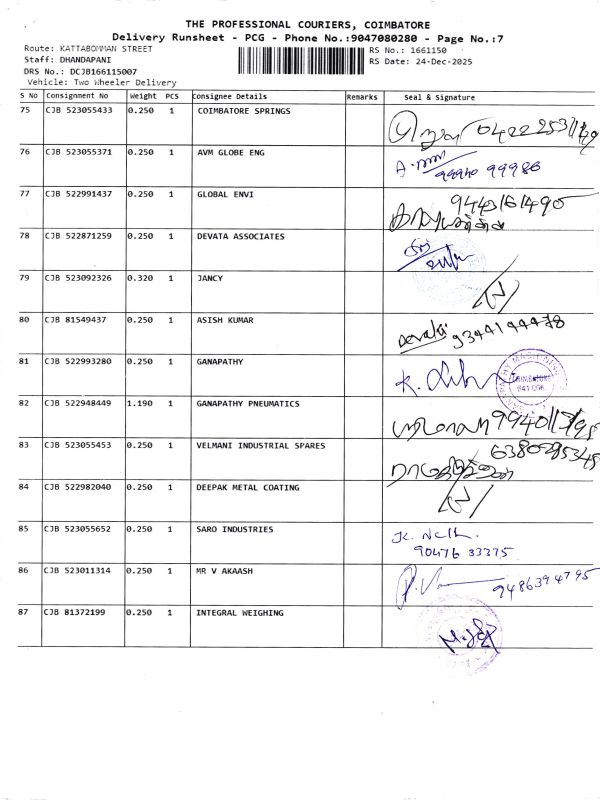 THE PROFESSIONAL COURIERS, COIMBATORE
Delivery Runsheet - PCG - Phone No.:9047080280 - Page No.:7
Route: KATTABOMMAN STREET
RS No.: 1661150
Staff: DHANDAPANI
RS Date: 24-Dec-2025
DRS No.: DCJB166115007
Vehicle: Two Wheeler Delivery
S No Consignment No Weight PCS Consignee Details Remarks Seal & Signature
75 CJB 523055433 0.250 1 COIMBATORE SPRINGS
76 CJB 523055371 0.250 1 AVM GLOBE ENG 99940 99986
77 CJB 522991437 0.250 1 GLOBAL ENVI
78 CJB 522871259 0.250 1 DEVATA ASSOCIATES
79 CJB 523092326 0.320 1 JANCY
80 CJB 81549437 0.250 1 ASISH KUMAR Devaki
81 CJB 522993280 0.250 1 GANAPATHY
82 CJB 522948449 1.190 1 GANAPATHY PNEUMATICS
83 CJB 523055453 0.250 1 VELMANI INDUSTRIAL SPARES
84 CJB 522982040 0.250 1 DEEPAK METAL COATING
85 CJB 523055652 0.250 1 SARO INDUSTRIES
90476 33375
86 CJB 523011314 0.250 1 MR V AKAASH 9486394795
87 CJB 81372199 0.250 1 INTEGRAL WEIGHING